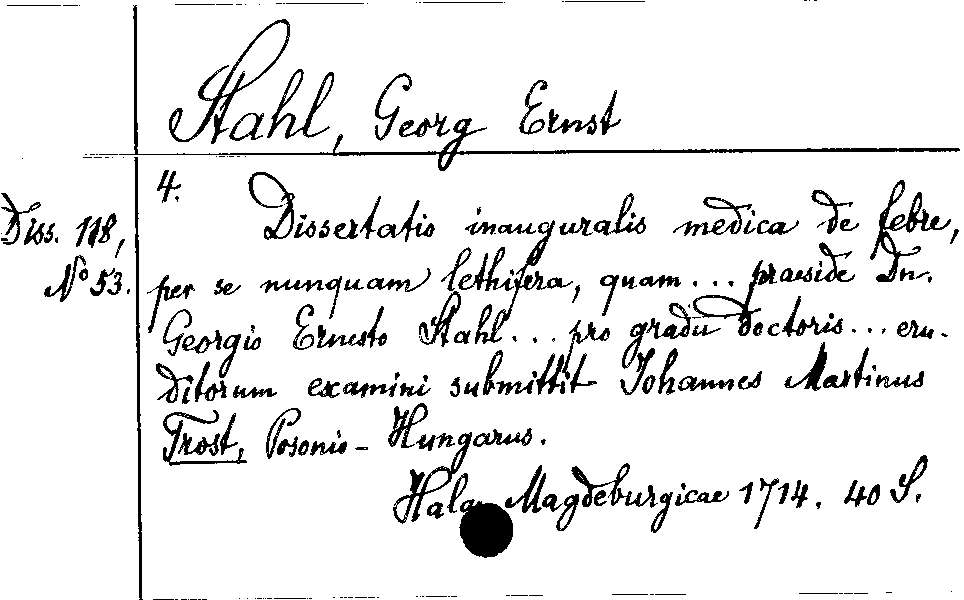 Stahl, Georg Ernst
4.
Diss. 118,
No 53.
Dissertatio inauguralis medica de febre,
per se nunquam lethifera, quam... praeside Dn.
Georgio Ernesto Stahl... pro gradu doctoris... eru-
ditorum examini submittit Johannes Martinus
Trost, Posonio-Hungarus.
Halae Magdeburgicae 1714. 40 S.